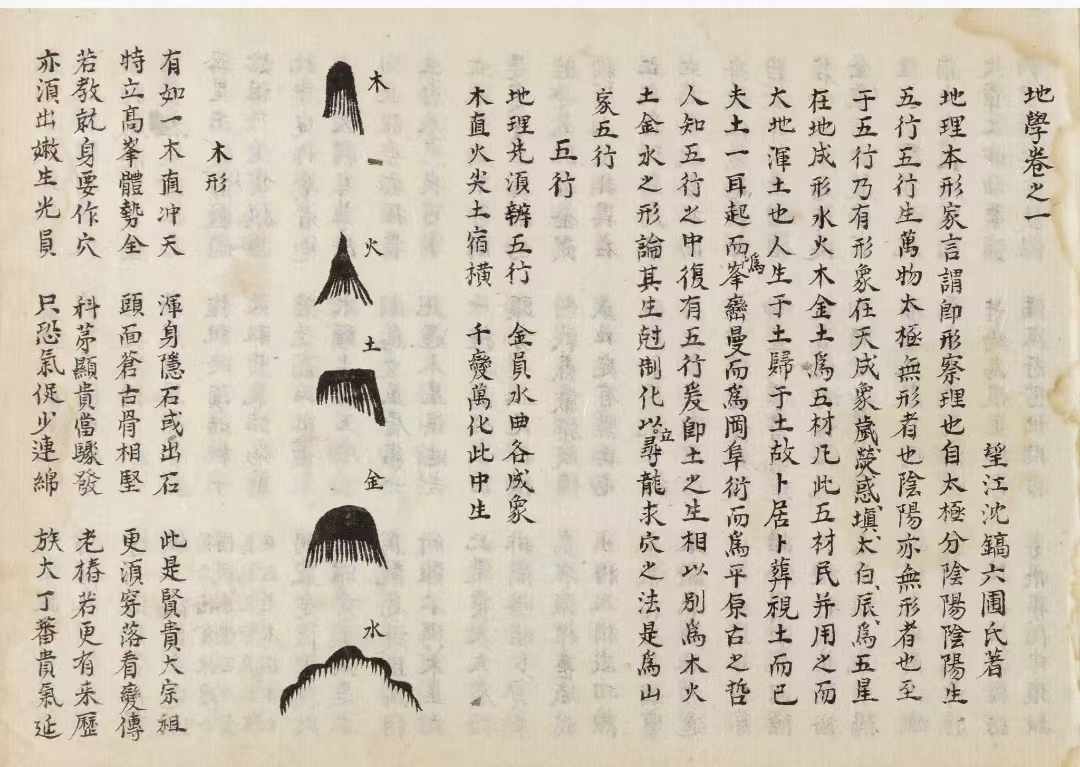 地學卷之一
望江沈鎬六圃氏著
地理本形家言謂卽形察理也自太極分陰陽陰陽生
五行五行生萬物太極無形者也陰陽亦無形者也至
于五行乃有形象在天成象歲熒惑填太白辰爲五星
在地成形水火木金土爲五材凡此五材民并用之而
大地渾土也人生于土歸于土故卜居卜葬視土而已
夫土一耳起而爲峯巒曼而爲岡阜衍而爲平原古之哲
人知五行之中復有五行爰卽土之生相以別爲木火
土金水之形論其生尅制化以立尋龍求穴之法是爲山
家五行
五行
地理先須辨五行 金員水曲各成象
木直火尖土宿橫 千變萬化此中生
木
火
土
金
水
木形
有如一木直冲天 渾身隱石或出石 此是賢貴大宗祖
特立高峯體勢全 頭面蒼古骨相堅 更須穿落看變傳
若教就身要作穴 科第顯貴當驟發 老樁若更有來歷
亦須出嫩生光員 只恐氣促少連綿 族大丁蕃貴氣延